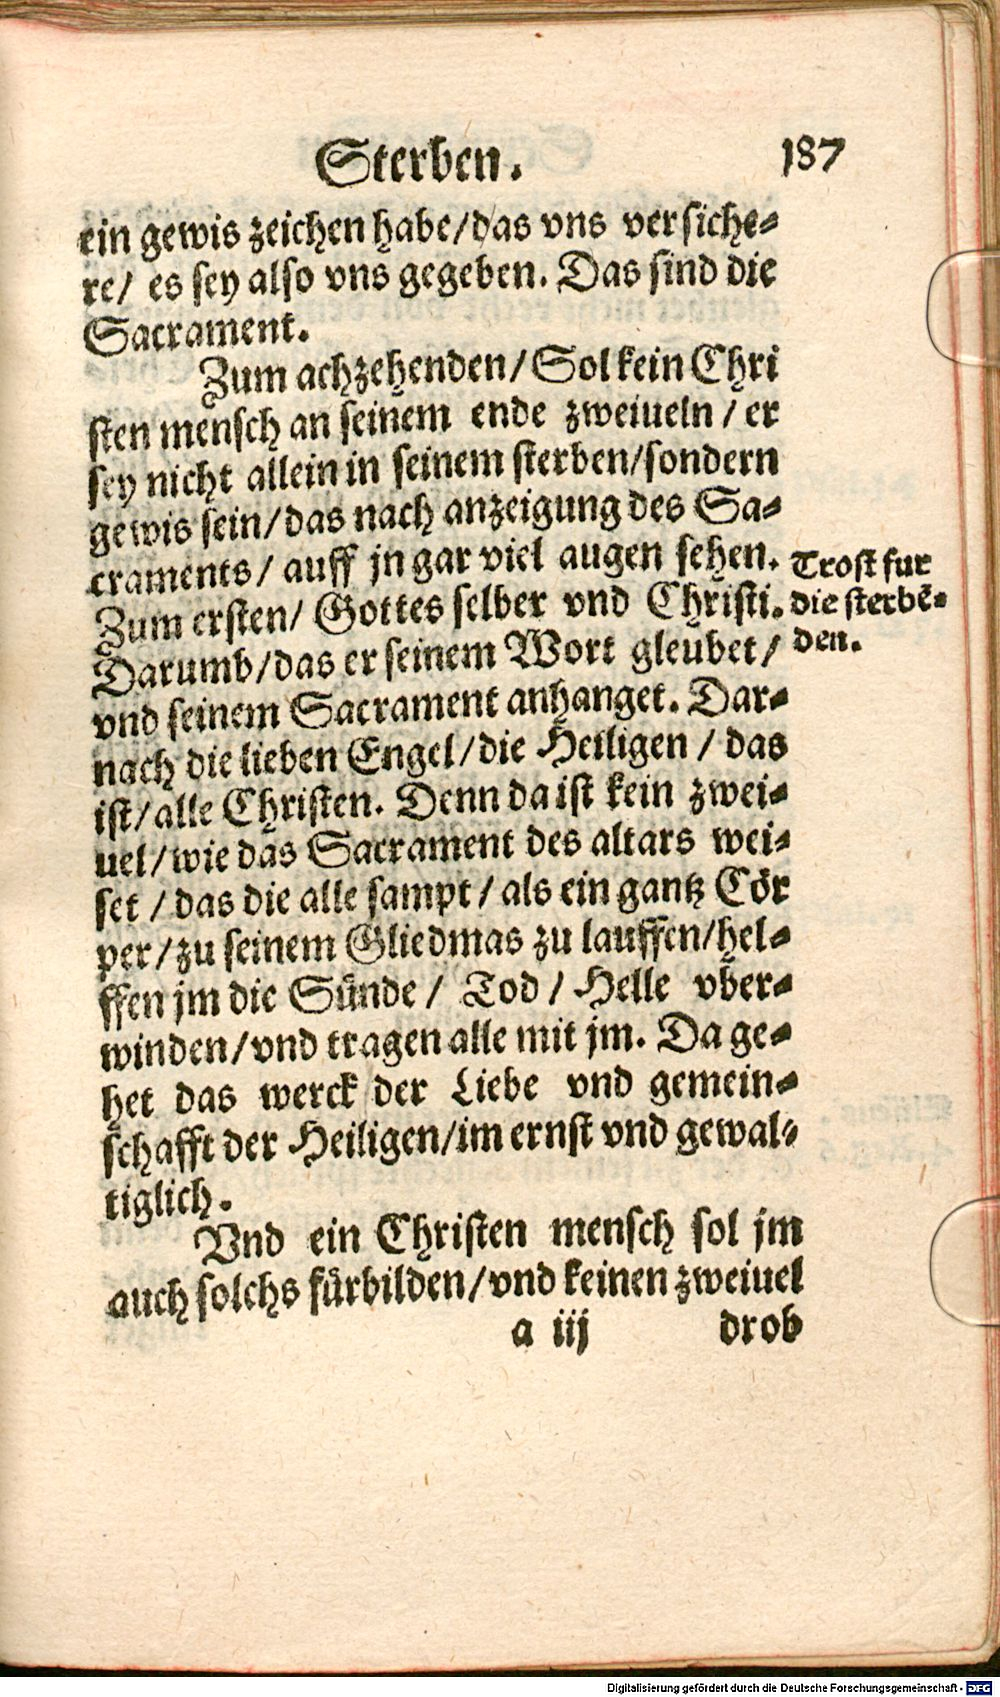 Sterben. 187
ein gewis zeichen habe/das vns versiche⸗
re/ es sey also vns gegeben. Das sind die
Sacrament.
Zum achzehenden/Sol kein Chri
sten mensch an seinem ende zweiueln/er
sey nicht allein in seinem sterben/sondern
gewis sein/das nach anzeigung des Sa⸗
craments/ auff jn gar viel augen sehen.
Zum ersten/ Gottes selber vnd Christi.
Darumb/das er seinem Wort gleubet/
vnd seinem Sacrament anhanget. Dar⸗
nach die lieben Engel/die Heiligen/ das
ist/alle Christen. Denn da ist kein zwei⸗
uel/wie das Sacrament des altars wei⸗
set/das die alle sampt/als ein gantz Cör
per/zu seinem Gliedmas zu lauffen/hel⸗
ffen jm die Sünde/ Tod/ Helle vber⸗
winden/vnd tragen alle mit jm. Da ge⸗
het das werck der Liebe vnd gemein⸗
schafft der Heiligen/im ernst vnd gewal⸗
tiglich.
Vnd ein Christen mensch sol jm
auch solchs fürbilden/vnd keinen zweiuel
a iij drob
Trost fur
die sterbē⸗
den.
Digitalisierung gefördert durch die Deutsche Forschungsgemeinschaft - DFG